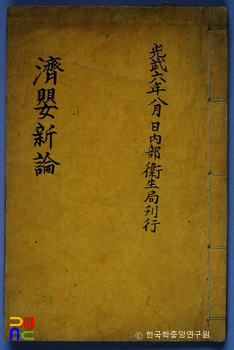 光武六年八月日內部衛生局刊行
濟嬰新論
© 한국학중앙연구원